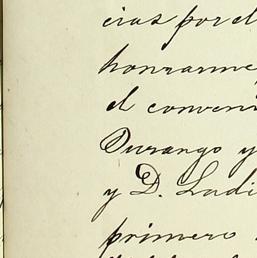 cias por el
honrarme
el conveni
Durango y
y D. Ladi
primero